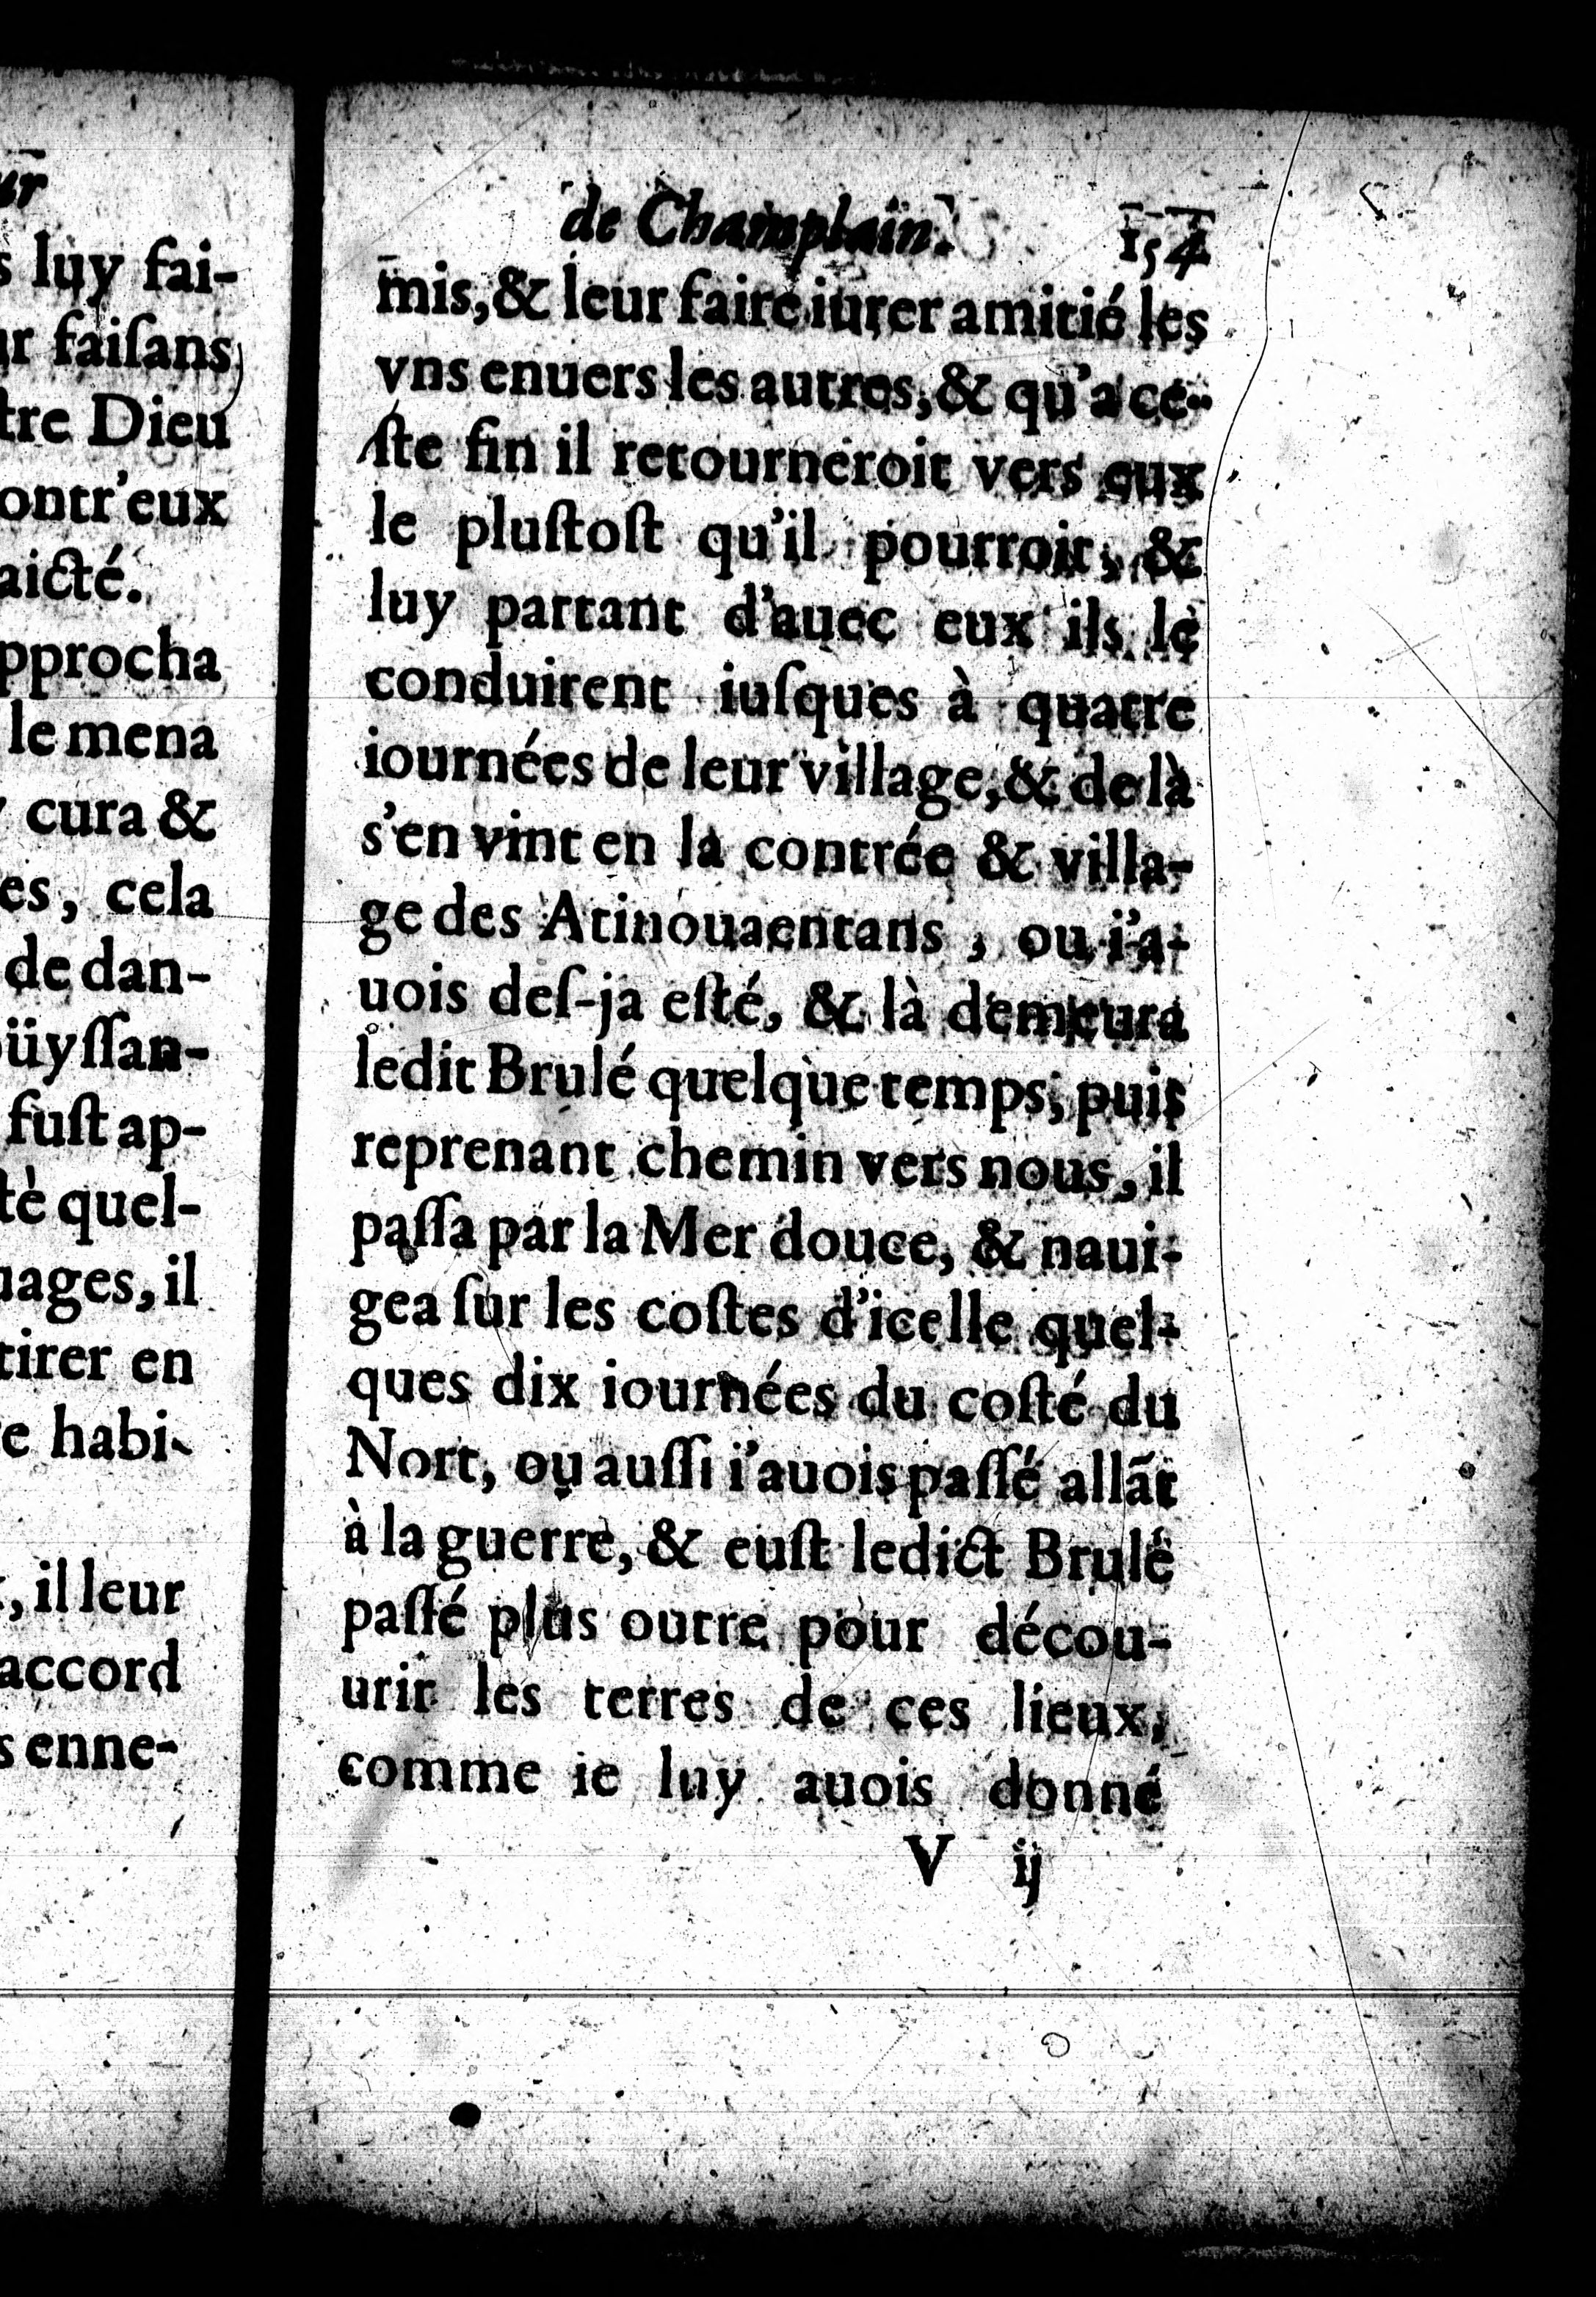 ur
s luy fai-
ur faiſans
tre Dieu
ontr'eux
aicté.
pprocha
le mena
cura &
es, cela
de dan-
oüyſſan-
fuſt ap-
tè quel-
uages, il
tirer en
e habi-
, il leur
accord
s enne-
de Champlain. 154
mis, & leur faire iurer amitié les
vns enuers les autres, & qu'a ce-
ſte fin il retourneroit vers eux
le pluſtoſt qu'il pourroit, &
luy partant d'auec eux ils le
conduirent iuſques à quatre
iournées de leur village, & de là
s'en vint en la contrée & villa-
ge des Atinouaentans, ou i'a-
uois deſ-ja eſté, & là demeura
ledit Brulé quelque temps, puis
reprenant chemin vers nous, il
paſſa par la Mer douce, & naui-
gea ſur les coſtes d'icelle quel-
ques dix iournées du coſté du
Nort, ou auſſi i'auois paſſé allãt
à la guerre, & euſt ledict Brulé
paſſé plus outre pour décou-
urir les terres de ces lieux,
comme ie luy auois donné
V ij